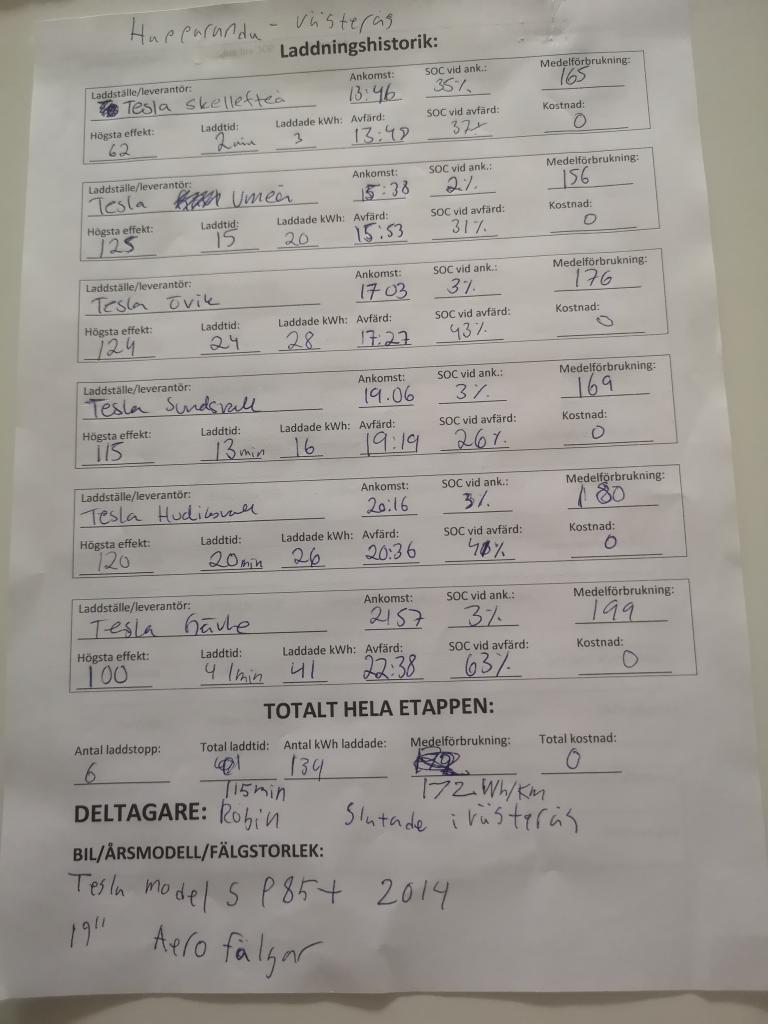 Happaranda - västerås
Laddningshistorik:
Laddställe/leverantör: Ankomst: SOC vid ank.: Medelförbrukning:
Tesla Skellefteå 13:46 35% 165
Högsta effekt: Laddtid: Laddade kWh: Avfärd: SOC vid avfärd: Kostnad:
62 2min 3 13:48 37% 0
Laddställe/leverantör: Ankomst: SOC vid ank.: Medelförbrukning:
Tesla Umeå 15:38 2% 156
Högsta effekt: Laddtid: Laddade kWh: Avfärd: SOC vid avfärd: Kostnad:
125 15 20 15:53 31% 0
Laddställe/leverantör: Ankomst: SOC vid ank.: Medelförbrukning:
Tesla övik 1703 3% 176
Högsta effekt: Laddtid: Laddade kWh: Avfärd: SOC vid avfärd: Kostnad:
124 24 28 17:27 43% 0
Laddställe/leverantör: Ankomst: SOC vid ank.: Medelförbrukning:
Tesla Sundsvall 19.06 3% 169
Högsta effekt: Laddtid: Laddade kWh: Avfärd: SOC vid avfärd: Kostnad:
115 13min 16 19:19 26% 0
Laddställe/leverantör: Ankomst: SOC vid ank.: Medelförbrukning:
Tesla Hudiksvall 20:16 3% 180
Högsta effekt: Laddtid: Laddade kWh: Avfärd: SOC vid avfärd: Kostnad:
120 20min 26 20:36 0
Laddställe/leverantör: Ankomst: SOC vid ank.: Medelförbrukning:
Tesla Gävle 2157 3% 199
Högsta effekt: Laddtid: Laddade kWh: Avfärd: SOC vid avfärd: Kostnad:
100 41min 41 22:38 63% 0
TOTALT HELA ETAPPEN:
Antal laddstopp: Total laddtid: Antal kWh laddade: Medelförbrukning: Total kostnad:
6 134 0
115min 172 Wh/Km
DELTAGARE: Robin Slutade i västerås
BIL/ÅRSMODELL/FÄLGSTORLEK:
Tesla model S P85+ 2014
19" Aero fälgar